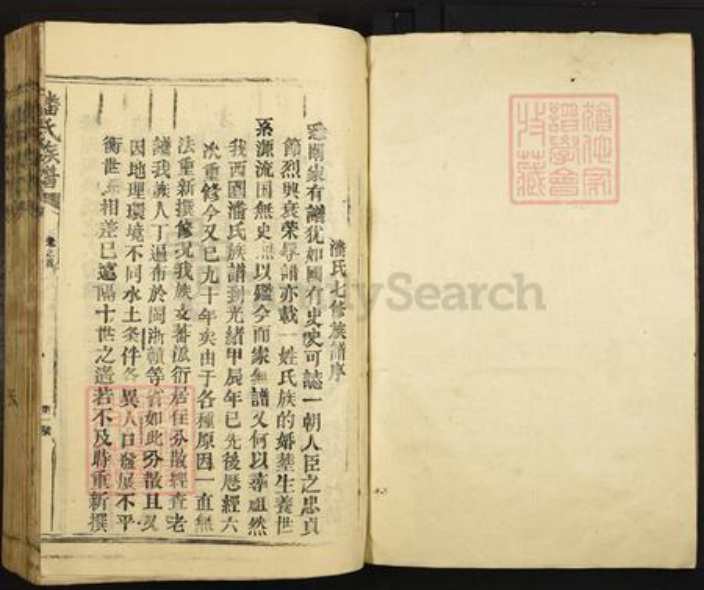 潘氏七修族譜序
家有譜犹如國有史史可誌一朝人臣之忠貞
節烈興衰荣辱譜亦載一姓氏族的婚塟生養世
系源流国無史無以鑑今而家無譜又何以尋祖然
我西園潘氏族譜到光緒甲辰年已先後歷經六
次重修今又已九十年矣由于各種原因一直無
法重新撰修况我族支蕃派衍居住分散經查老
譜我族人丁遍布於閩浙贛等省如此分散且又
因地理環境不同水土条件各異人口發展不平
衡世系相差已遠隔十世之遙若不及時重新撰
潘氏族譜
卷之首
MySearch
譜學會
特藏